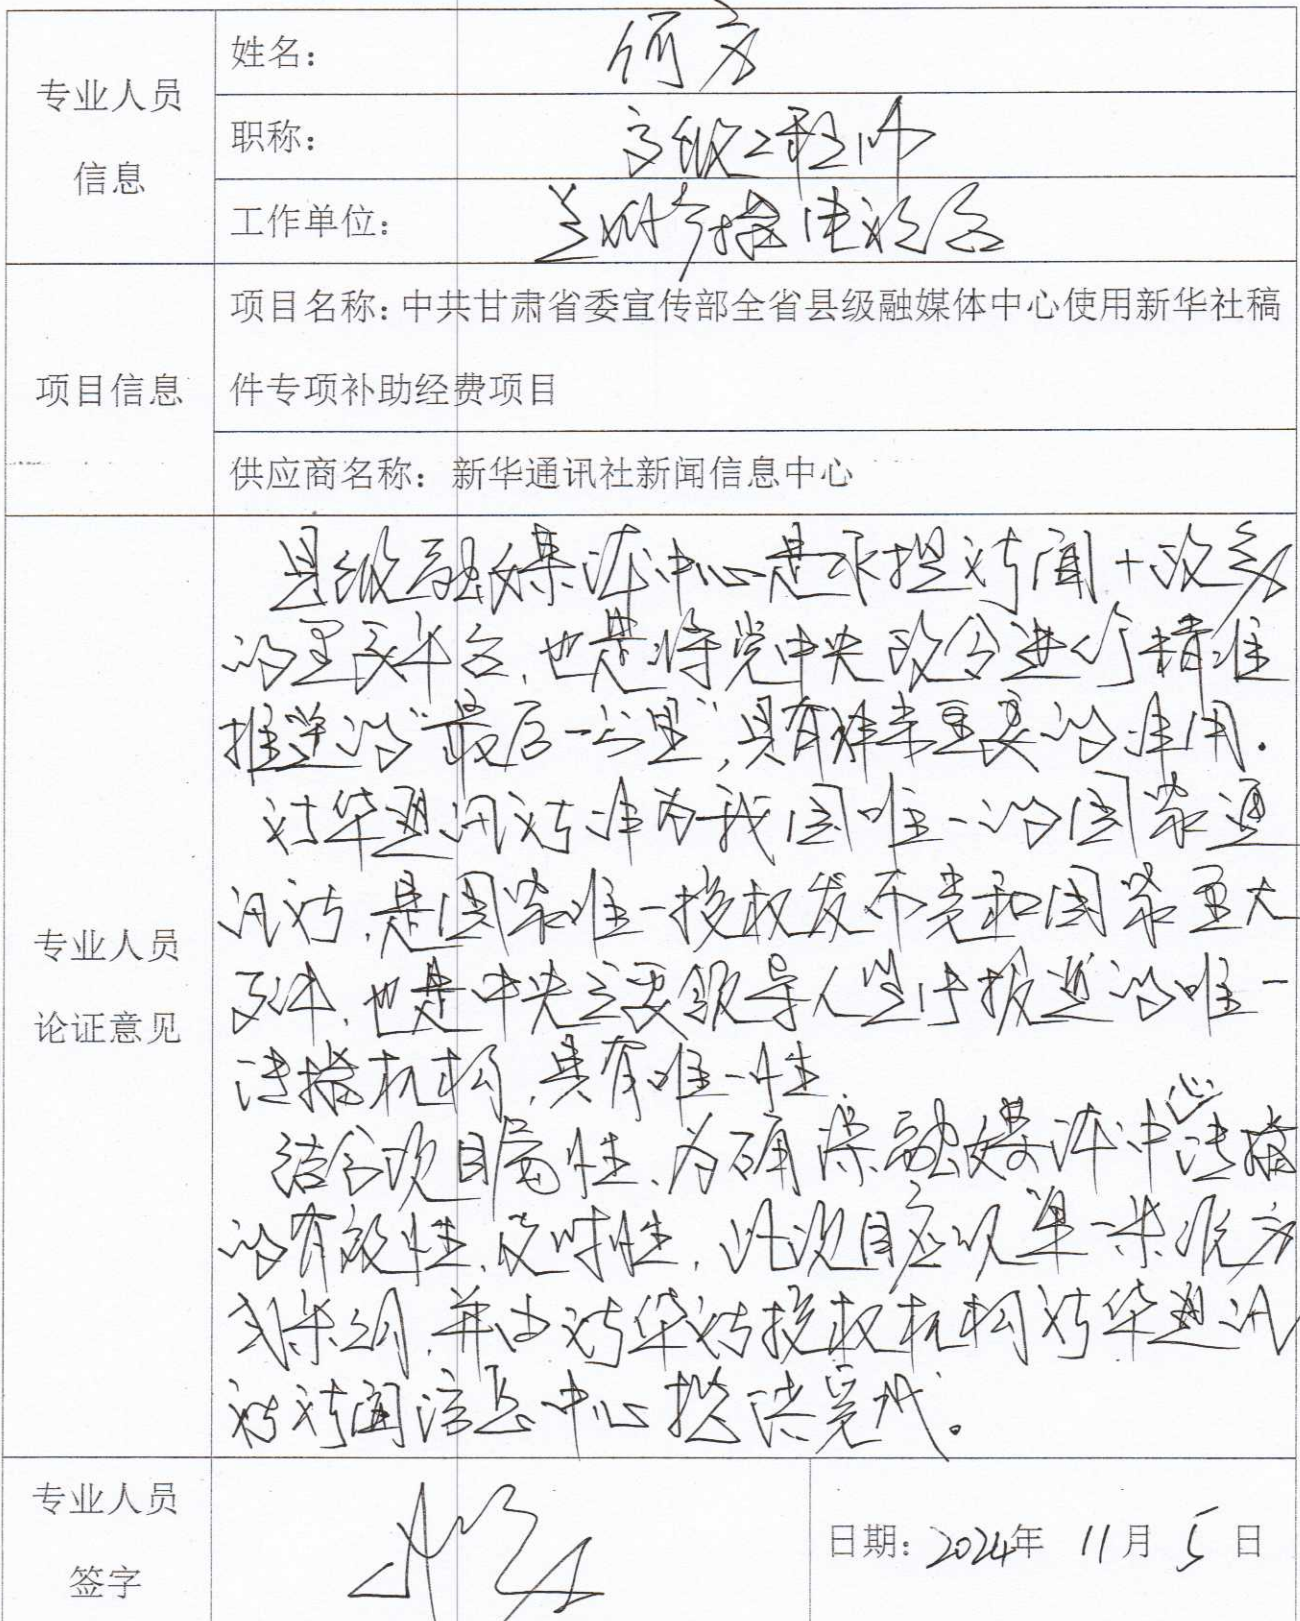 专业人员
信息
姓名：何方
职称：高级工程师
工作单位：兰州广播电视台
项目信息
项目名称：中共甘肃省委宣传部全省县级融媒体中心使用新华社稿
件专项补助经费项目
供应商名称：新华通讯社新闻信息中心
专业人员
论证意见
县级融媒体中心是承担新闻+政务
的重要平台，也是将党中央政令进行精准
推送的“最后一公里”，具有非常重要的作用。
新华通讯社作为我国唯一的国家通
讯社，是国家唯一授权发布党和国家重大
文件，也是中央主要领导人宣传报道的唯一
传播机构，具有唯一性。
结合项目属性，为确保融媒体中心传播
的有效性、及时性，此项目应以单一来源方
式采购，并由新华社授权机构新华通讯
社新闻信息中心提供完成。
专业人员
签字
日期：2024年 11月 5日